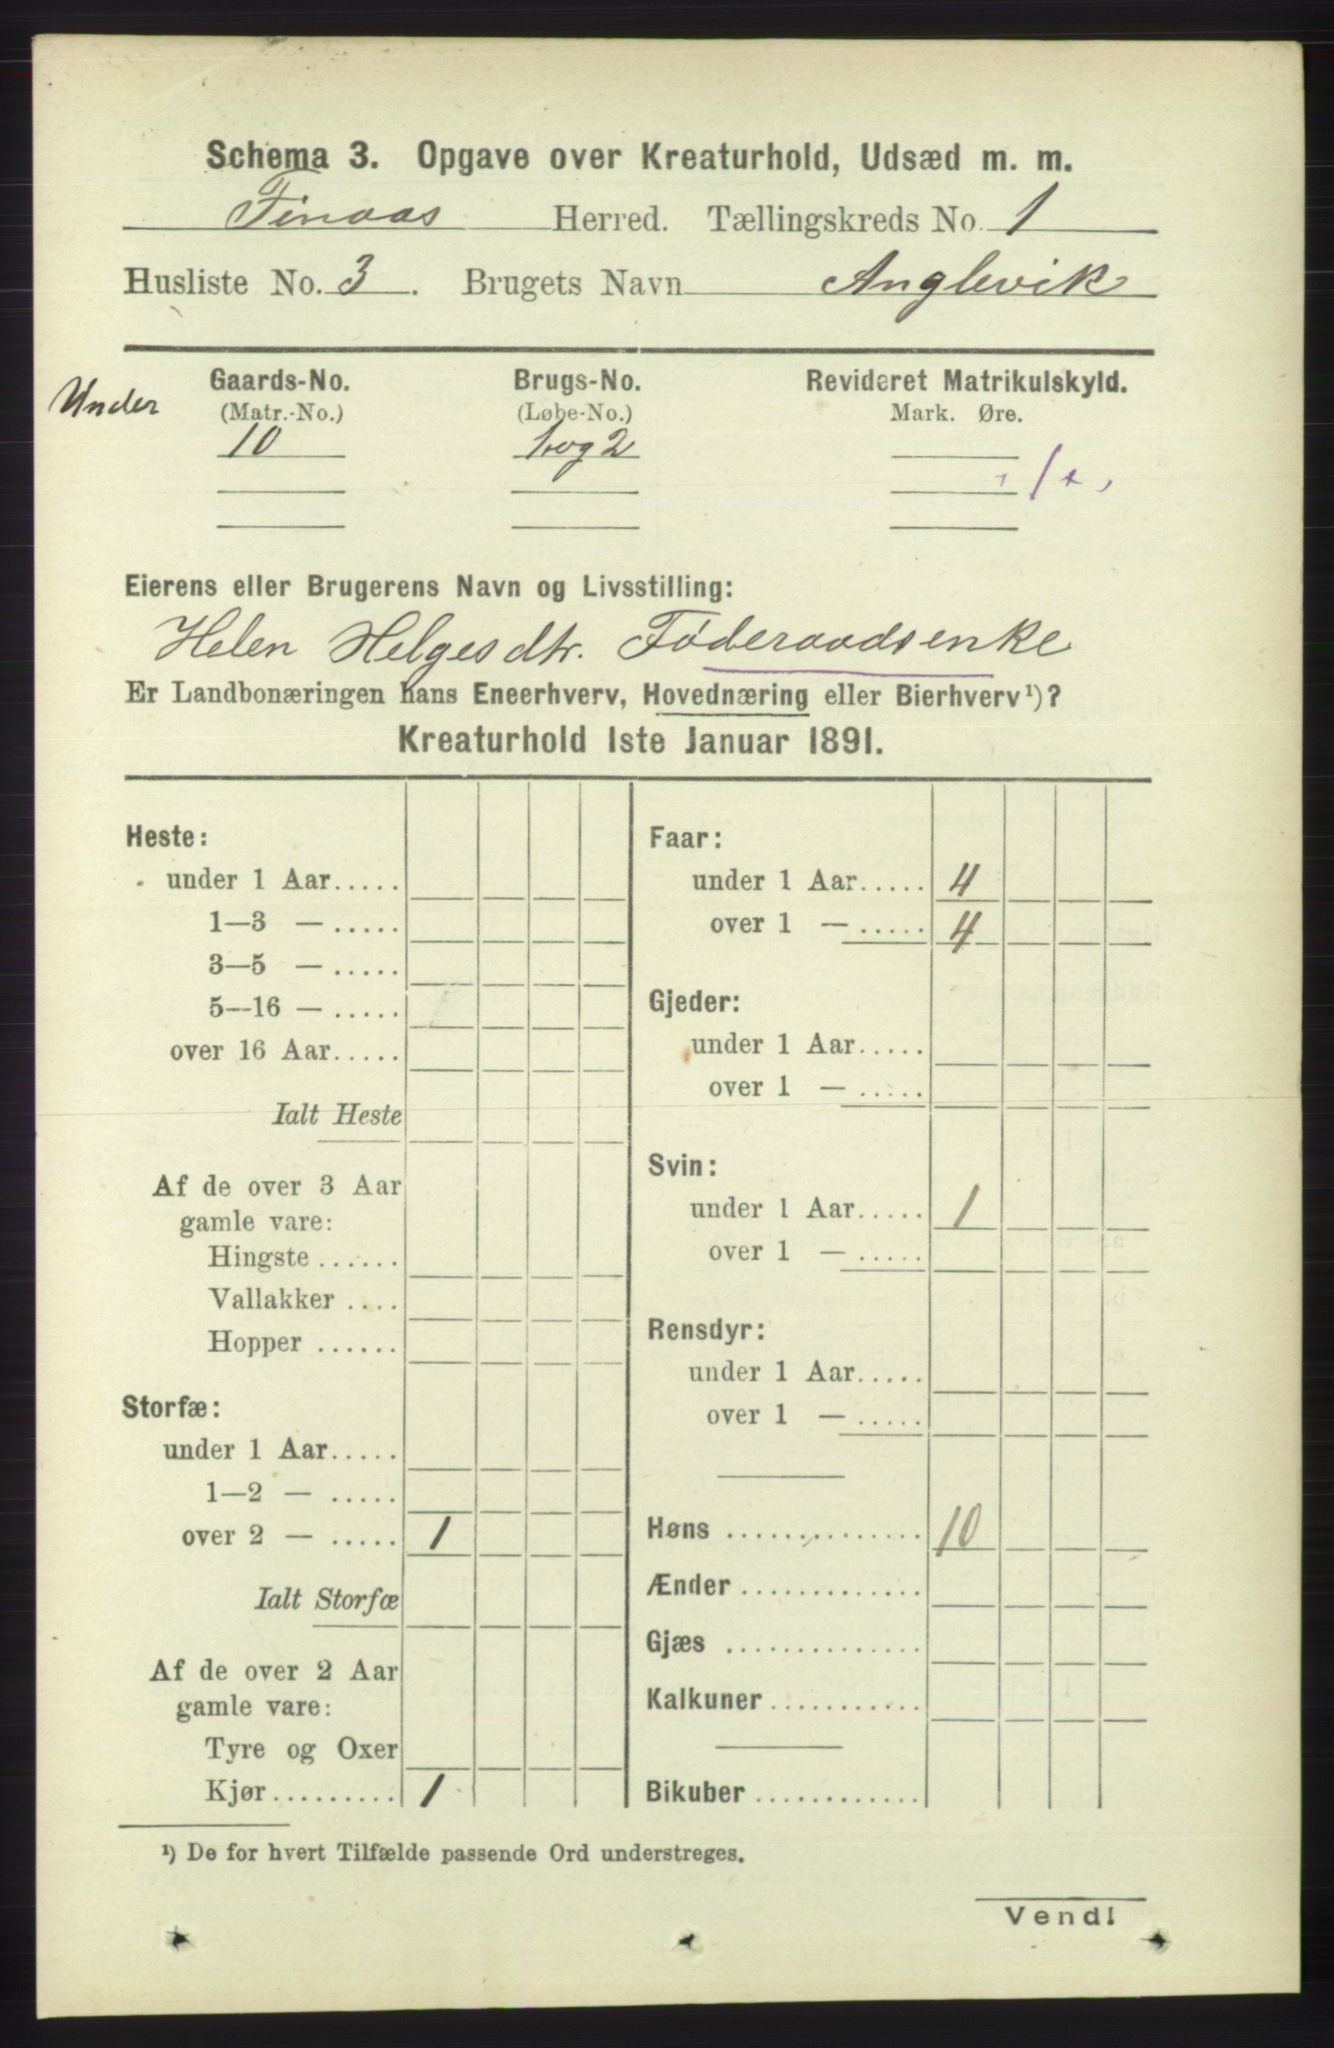 Schema 3. Opgave over Kreaturhold, Udsæd m. m.
Finaas Herred. Tællingskreds No. 1
Husliste No. 3. Brugets Navn Anglevik
Gaards-No. Brugs-No. Revideret Matrikulskyld.
Under (Matr.-No.) (Løbe-No.) Mark. Øre.
10 1 og 2
Eierens eller Brugerens Navn og Livsstilling:
Helen Helgesdtr. Føderaadsenke
Er Landbonæringen hans Eneerhverv, Hovednæring eller Bierhverv¹)?
Kreaturhold 1ste Januar 1891.
Heste:
under 1 Aar.....
1—3 — .....
3—5 — .....
5—16 — .....
over 16 Aar.....
Ialt Heste
Af de over 3 Aar
gamle vare:
Hingste ......
Vallakker ....
Hopper ......
Storfæ:
under 1 Aar.....
1—2 — .....
over 2 — ..... 1
Ialt Storfæ
Af de over 2 Aar
gamle vare:
Tyre og Oxer
Kjør......... 1
Faar:
under 1 Aar..... 4
over 1 — ..... 4
Gjeder:
under 1 Aar.....
over 1 — .....
Svin:
under 1 Aar..... 1
over 1 — .....
Rensdyr:
under 1 Aar.....
over 1 — .....
Høns .............. 10
Ænder .............
Gjæs ..............
Kalkuner ...........
Bikuber ............
¹) De for hvert Tilfælde passende Ord understreges.
Vend!